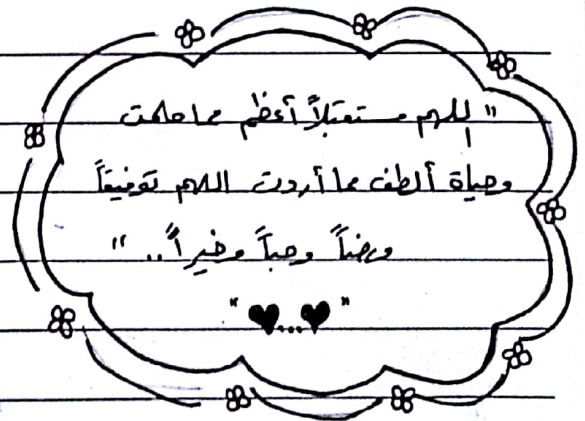 " اللهم مستقبلاً أعظم مما حلمت
وحياة ألطف مما أردت اللهم توفيقاً
ورضاً وحباً وخيراً.. "
" ♥...♥ "